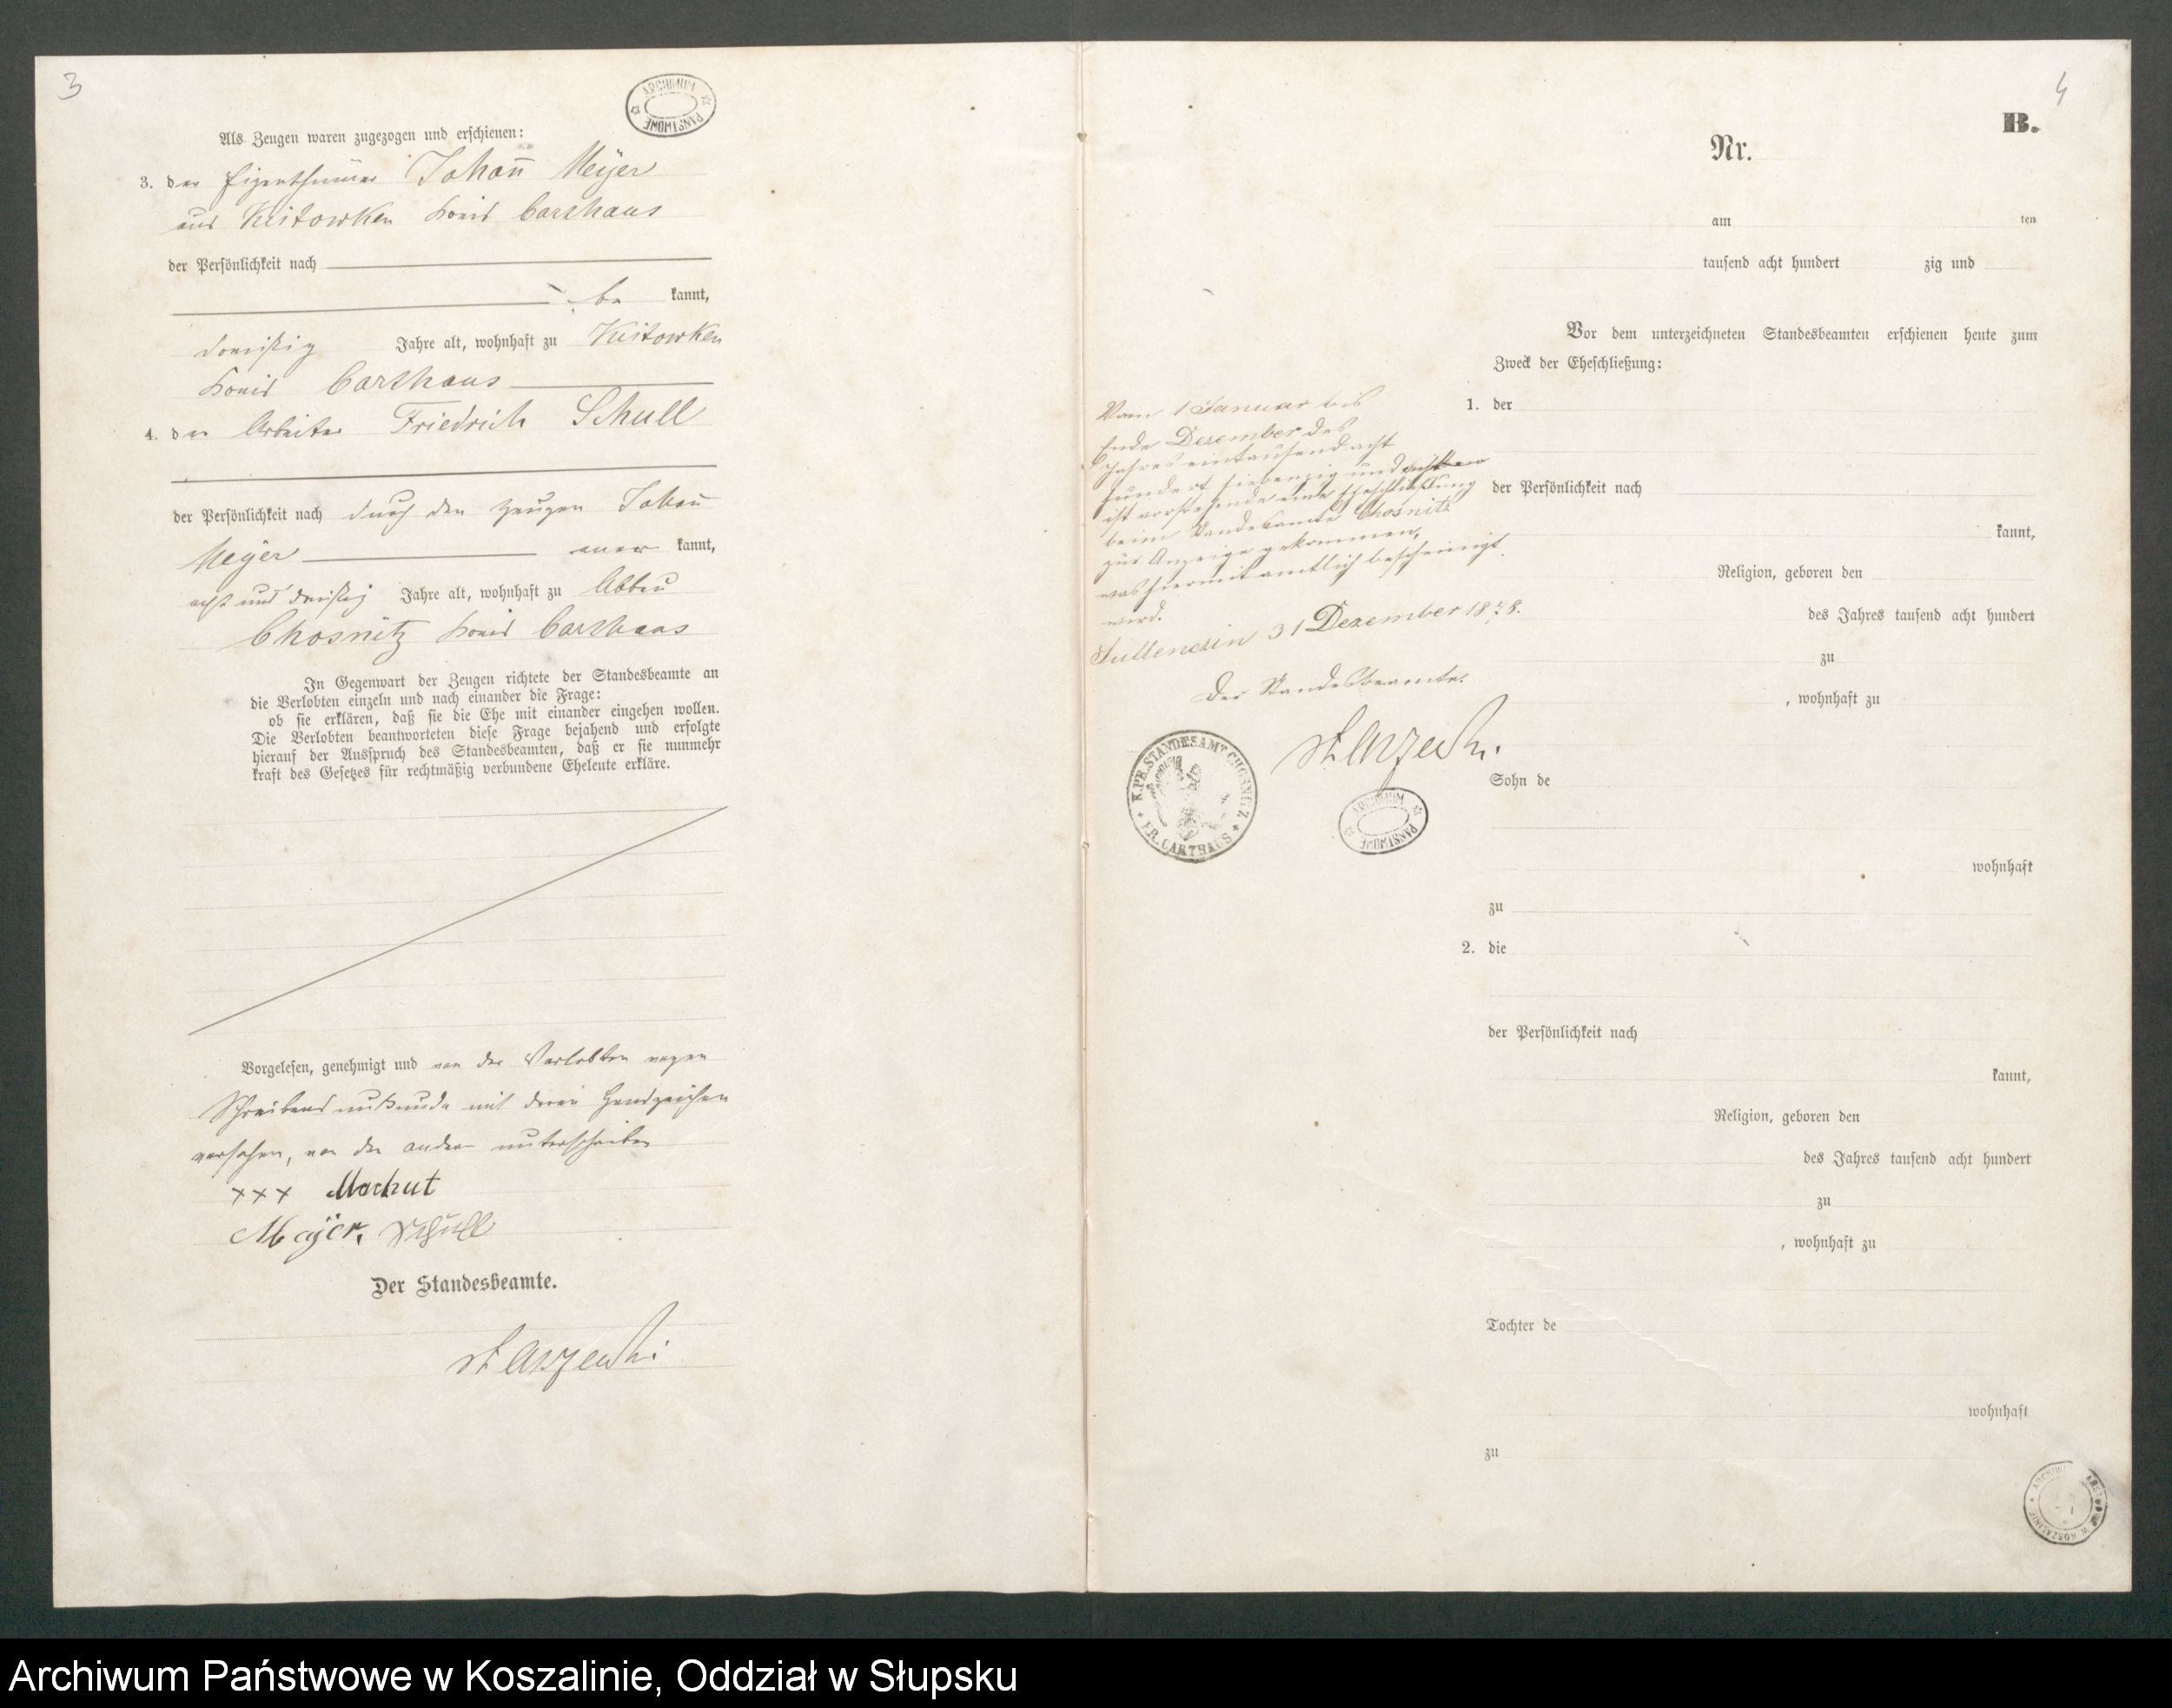 3
ARCHIWUM PAŃSTWOWE
Als Zeugen waren zugezogen und erschienen:
3. der Eigenthümer Johañ Meÿer
aus Kistowken Kreis Carthaus
der Persönlichkeit nach
be kannt,
dreißig Jahre alt, wohnhaft zu Kistowken
Kreis Carthaus
4. der Arbeiter Friedrich Schull
der Persönlichkeit nach durch den Zeugen Johañ
Meÿer aner kannt,
acht und dreißig Jahre alt, wohnhaft zu Abbau
Chosnitz Kreis Carthaus
In Gegenwart der Zeugen richtete der Standesbeamte an
die Verlobten einzeln und nach einander die Frage:
ob sie erklären, daß sie die Ehe mit einander eingehen wollen.
Die Verlobten beantworteten diese Frage bejahend und erfolgte
hierauf der Ausspruch des Standesbeamten, daß er sie nunmehr
kraft des Gesetzes für rechtmäßig verbundene Eheleute erkläre.
Vorgelesen, genehmigt und von der Verlobten wegen
Schreibensunkunde mit deren Handzeichen
versehen, von den andern unterschrieben
xxx Machut
Meÿer, Schull
Der Standesbeamte.
4
B.
Nr.
am ten
tausend acht hundert zig und
Vor dem unterzeichneten Standesbeamten erschienen heute zum
Zweck der Eheschließung:
1. der
der Persönlichkeit nach
kannt,
Religion, geboren den
des Jahres tausend acht hundert
zu
, wohnhaft zu
Sohn de
wohnhaft
zu
2. die
der Persönlichkeit nach
kannt,
Religion, geboren den
des Jahres tausend acht hundert
zu
, wohnhaft zu
Tochter de
wohnhaft
zu
Vom 1 Januar bis
Ende Dezember des
Jahres eintausend acht
hundert siebenzig und acht
ist vorstehende eine Eheschließung
beim Standesamte Chosnitz
zur Anzeige gekommen,
was hiermit amtlich bescheinigt
wird.
Sullenczin 31 Dezember 1878.
Der Standesbeamte.
K. PR. STANDESAMT CHOSNITZ
KR. CARTHAUS
ARCHIWUM PAŃSTWOWE
ARCHIWUM PAŃSTWOWE W KOSZALINIE
Archiwum Państwowe w Koszalinie, Oddział w Słupsku